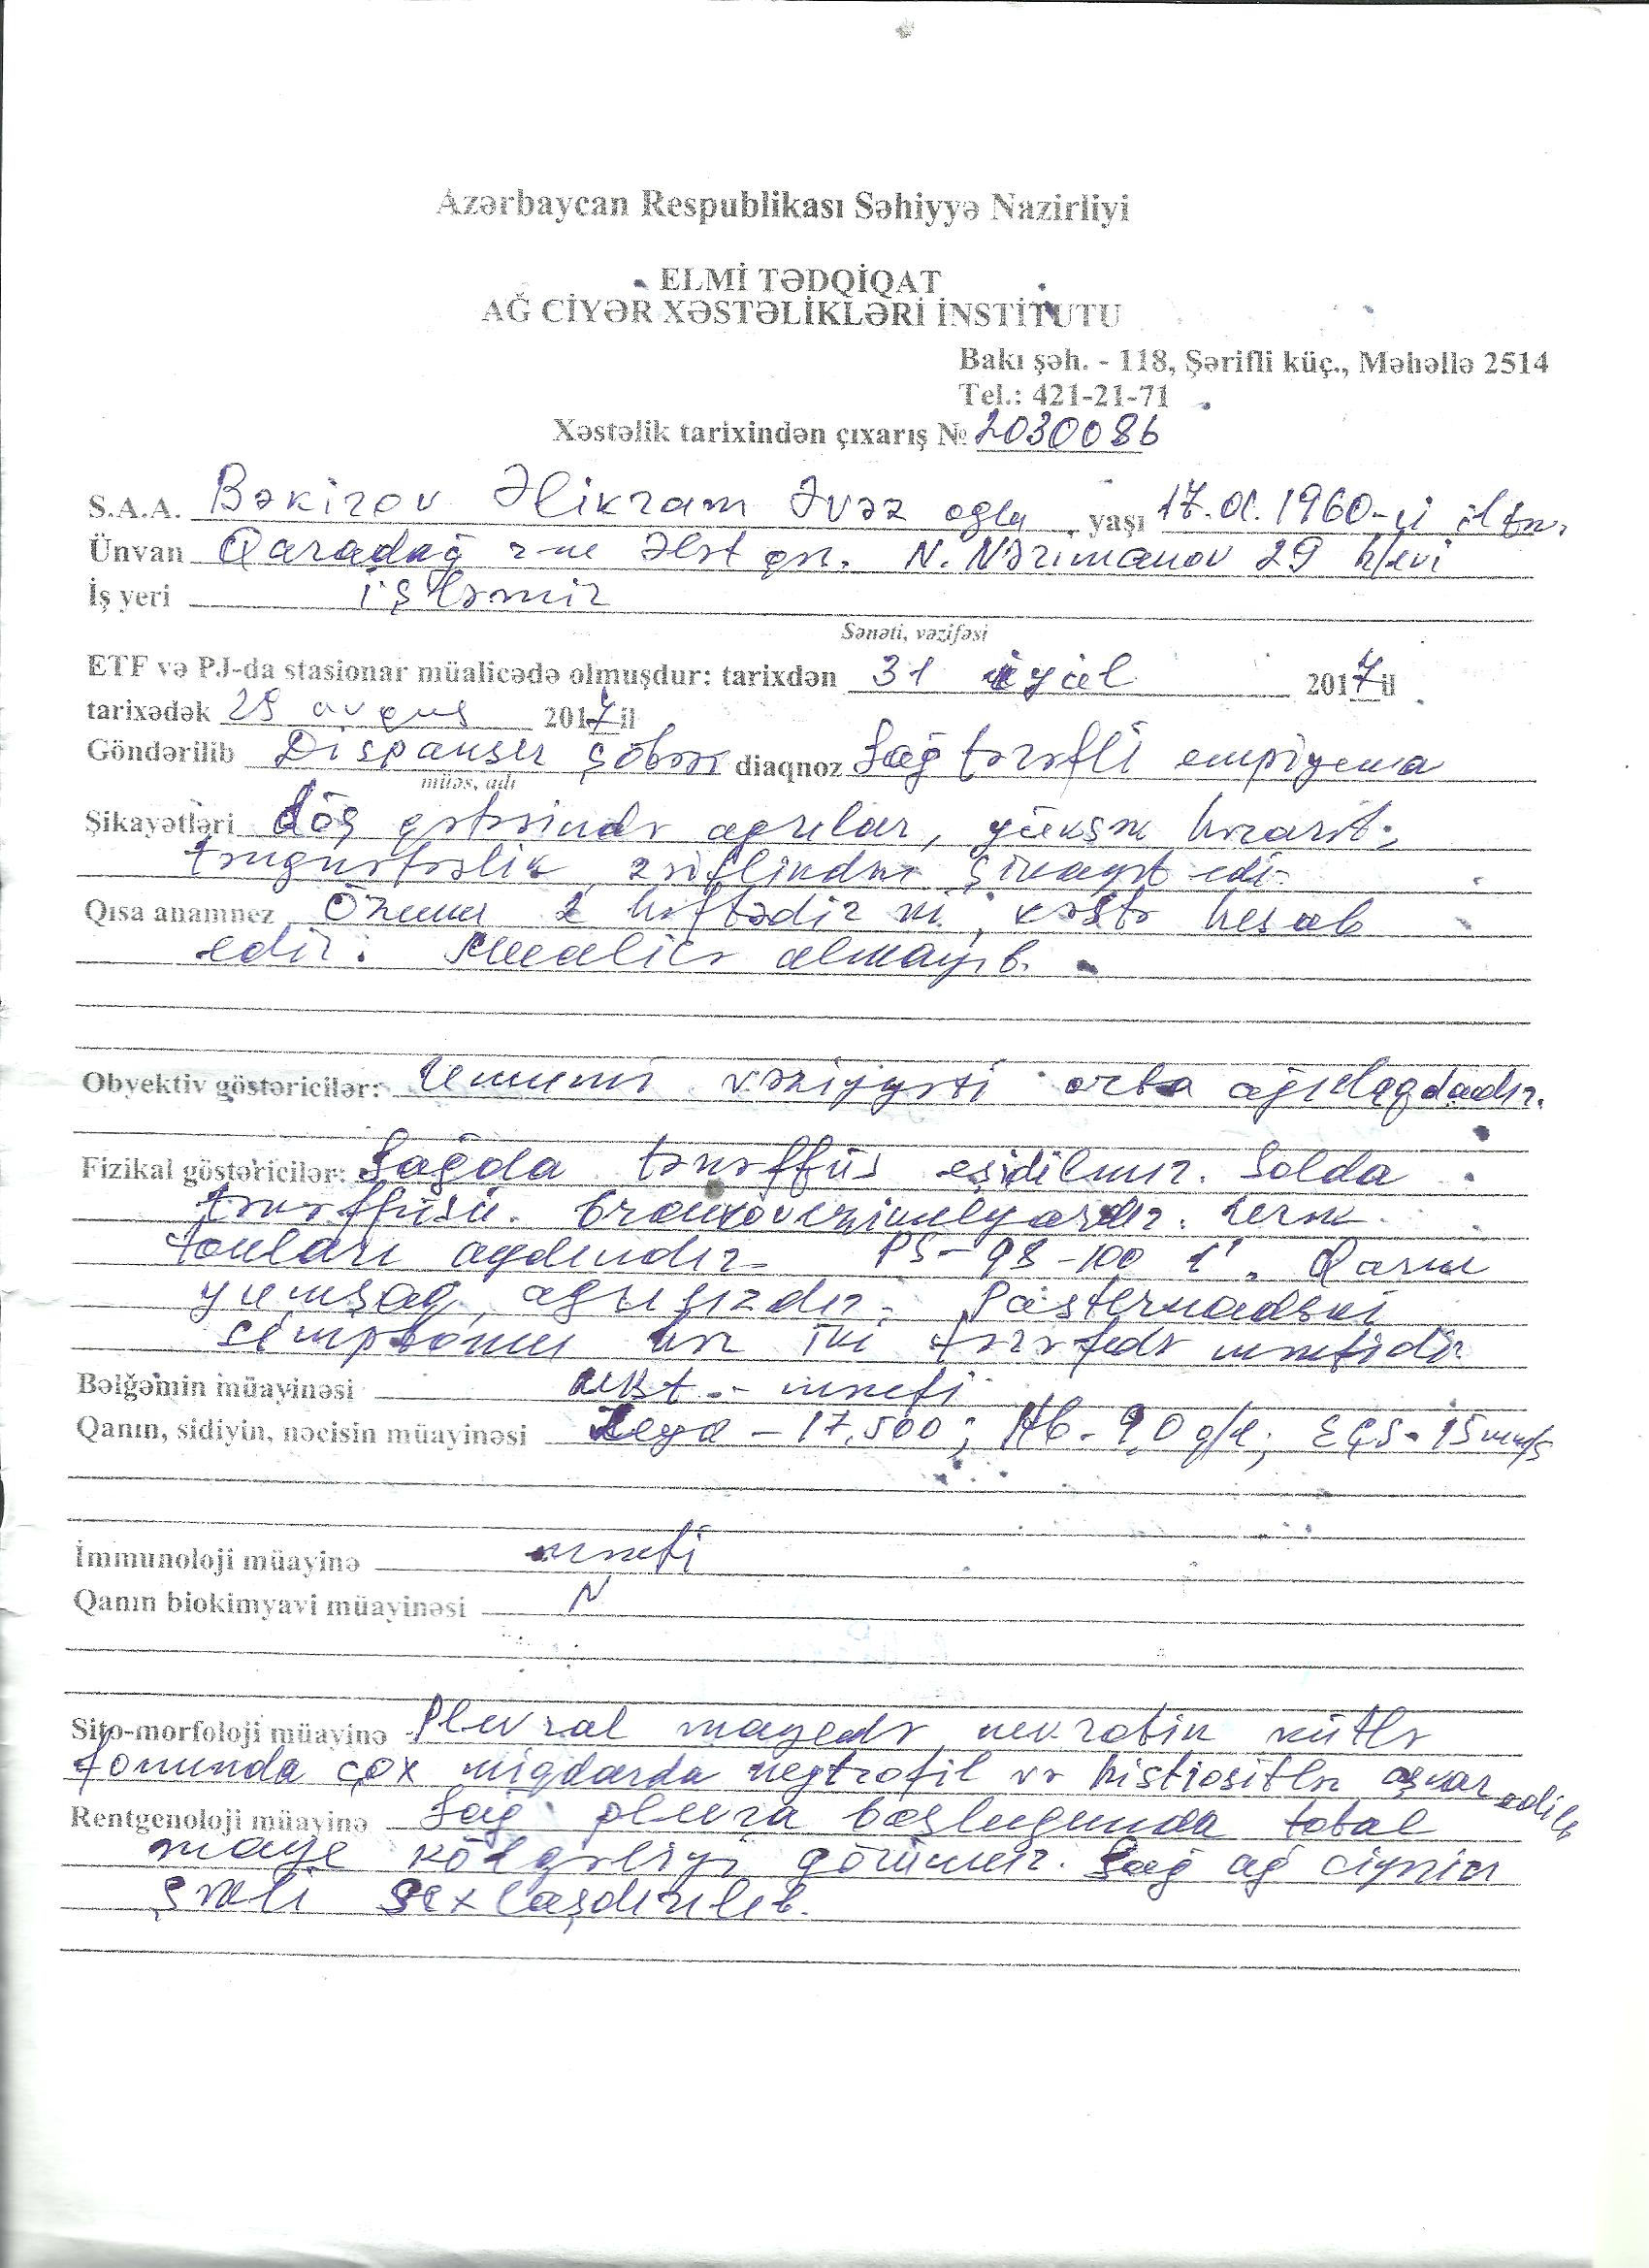 Azərbaycan Respublikası Səhiyyə Nazirliyi
ELMİ TƏDQİQAT
AĞ CİYƏR XƏSTƏLİKLƏRİ İNSTİTUTU
Bakı şəh. - 118, Şərifli küç., Məhəllə 2514
Tel.: 421-21-71
Xəstəlik tarixindən çıxarış № 2030086
S.A.A. Bəkirov Əlikram Əvəz oglu yaşı 1960-çi
Ünvan Qaradağ r-nu Ələt qəs. N. Nərimanov 29 h/evi
İş yeri işləmir
Sənəti, vəzifəsi
ETF və PJ-da stasionar müalicədə olmuşdur: tarixdən 31 iyul 2017 il
tarixədək 29 avqus 2017 il
Göndərilib Dispanser şöbəsi diaqnoz Sağ tərəfli empiyema
müəs, adı
Şikayətləri döş qəfəsində agrılar, yüksək hərarət,
təngnəfəslik, zəiflikdən şikayət edir
Qısa anamnez Özunu 2 həftədir ki, xəstə hesab
edir. Mualicə almayıb.
Obyektiv göstəricilər: Umumi vəziyyəti orta ağırlıqdadır.
Fizikal göstəricilər: Sağda tənəffüs eşidilmir. Solda
tənəffüsü bronxovezikulyardır. Ürək
tonları aydındır. PS - 98 - 100 1'. Qarnı
yumşaq, ağrısızdır. Pasternadski
simptomu hər iki tərəfdə mənfidir
Bəlğəmin müayinəsi MBT - mənfi
Qanın, sidiyin, nəcisin müayinəsi Leyk - 17,500; Hb - 9,0 g/l; EÇS - 15 mm/s
İmmunoloji müayinə mənfi
Qanın biokimyavi müayinəsi N
Sito-morfoloji müayinə Plevral mayedə nekrotik kütlə
fonunda çox miqdarda neytrofil və histiositlər aşkar edilib
Rentgenoloji müayinə Sağ plevra boşlugunda total
maye kölgəliyi görünür. Sağ ağ ciyərin
şəkli sıxlaşdırılıb.